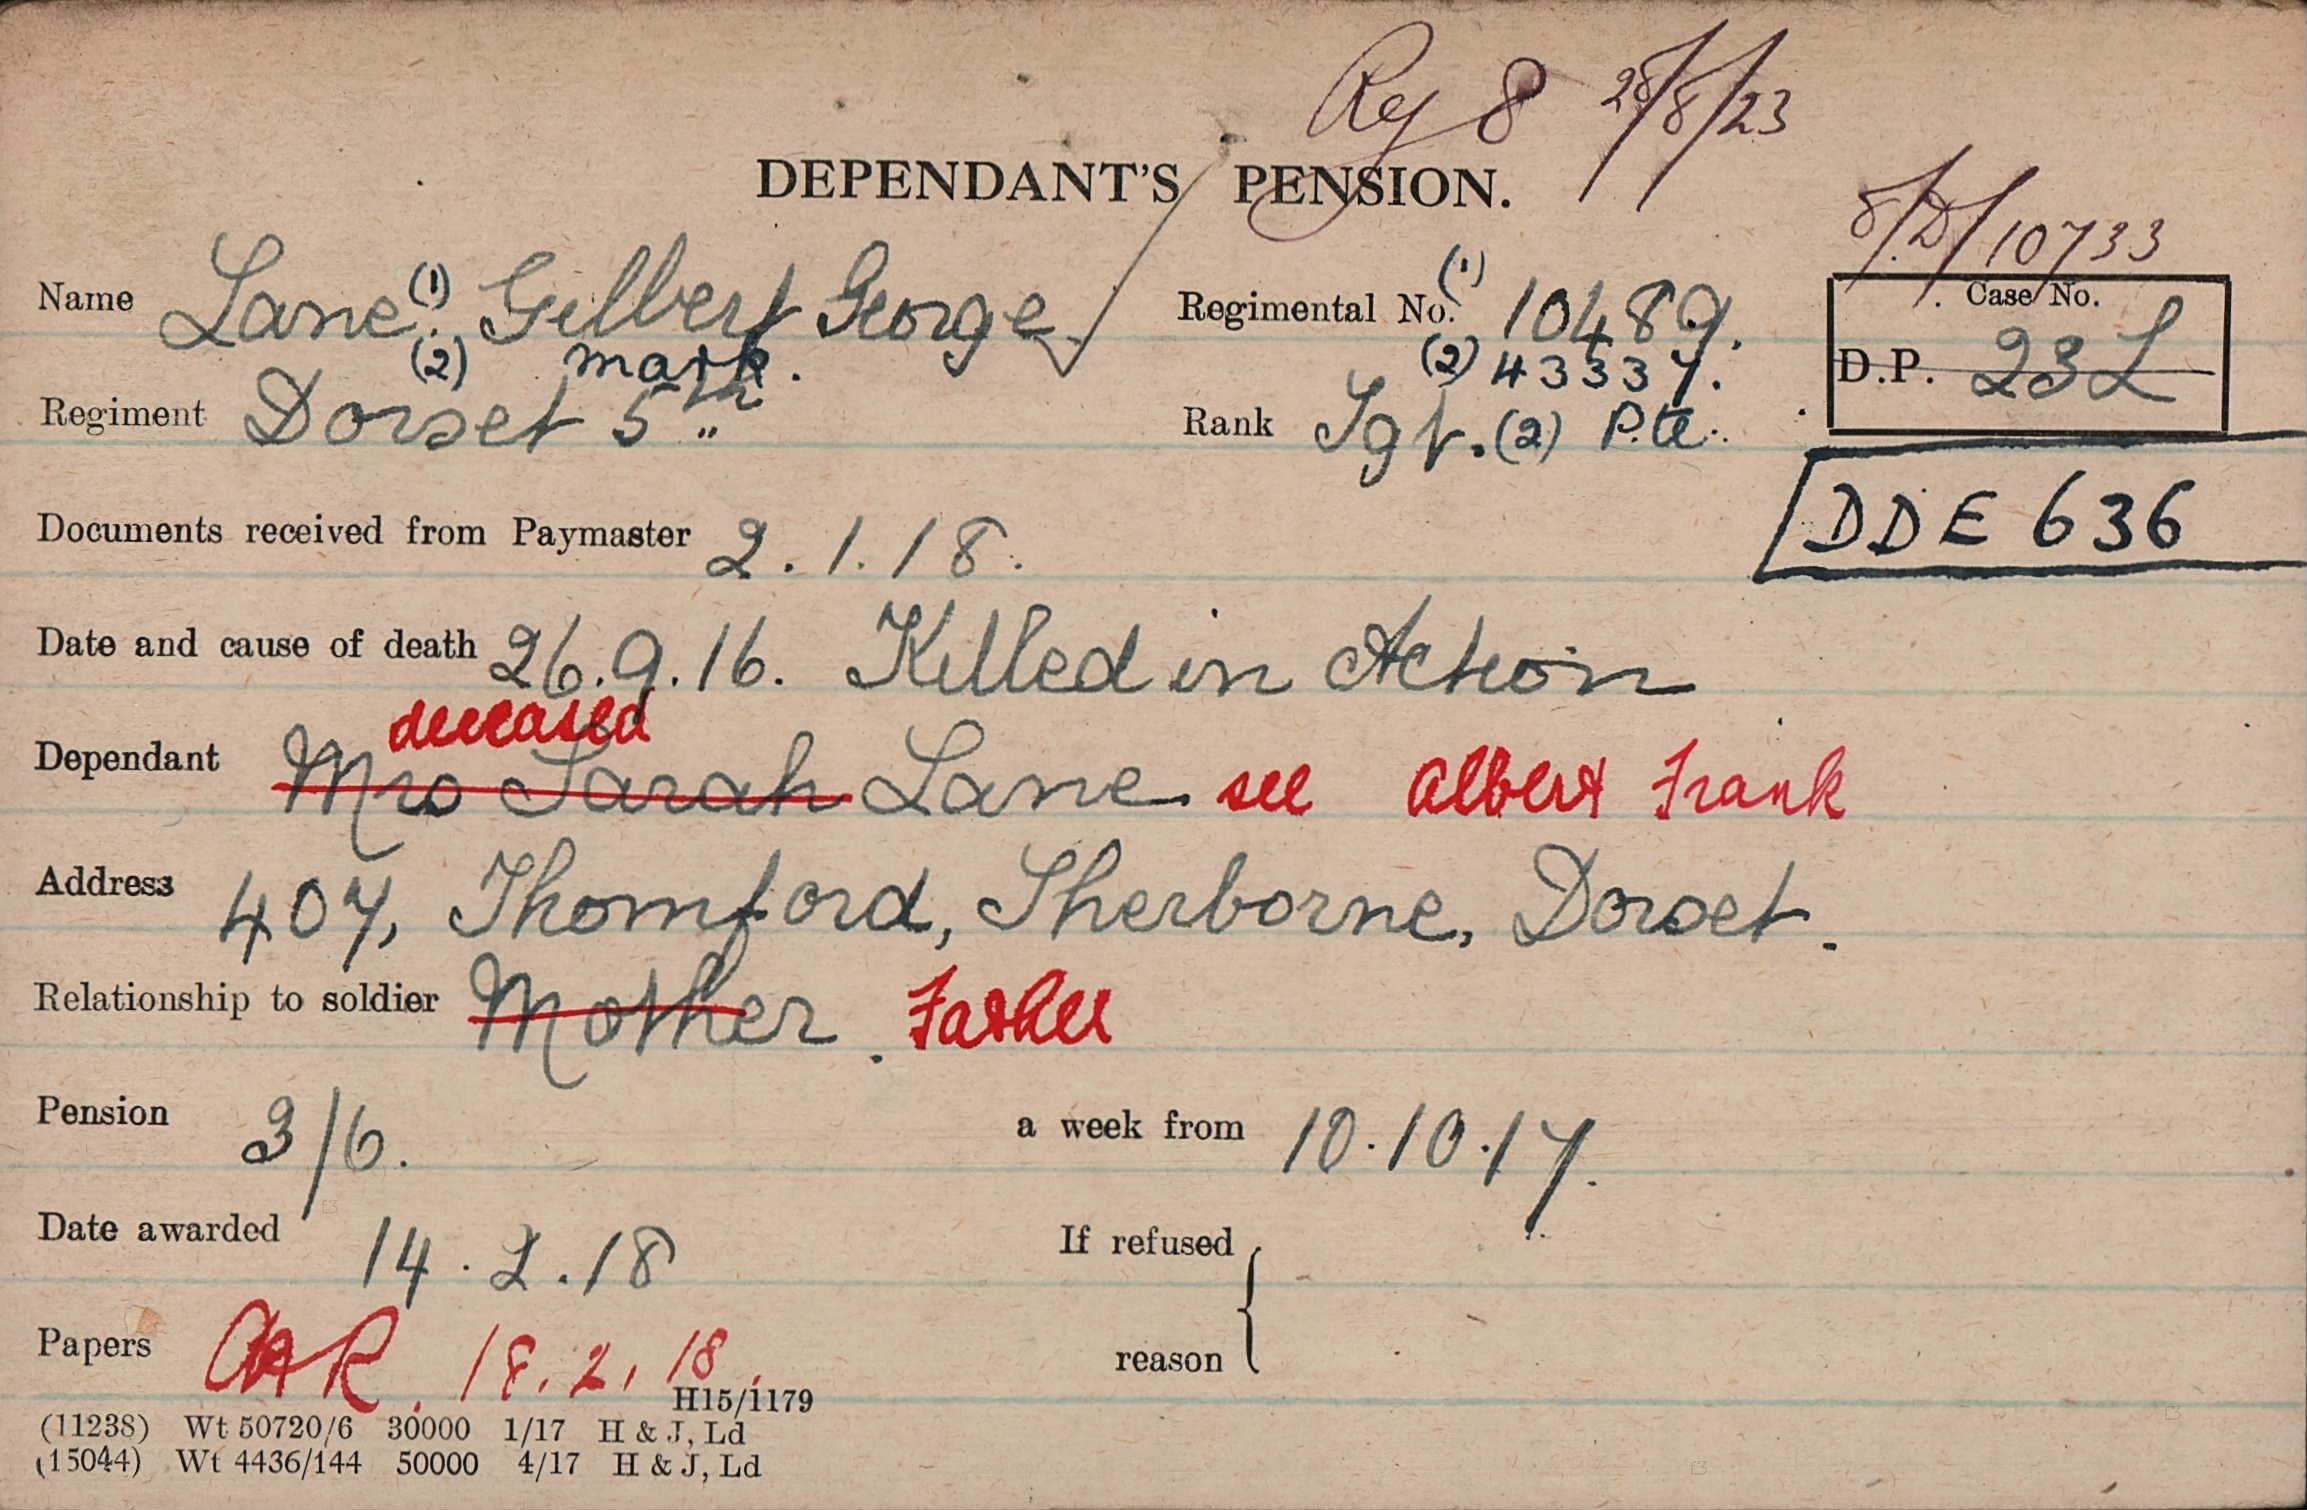 Reg 8 28/8/23
DEPENDANT'S PENSION.
8/D/10733
Name Lane. (1) Gilbert George Regimental No. (1) 10489.
(2) mark. (2) 43337.
Case No.
D.P. 23L
Regiment Dorset 5th Rank Sgt. (2) Pte.
DDE 636
Documents received from Paymaster 2.1.18.
Date and cause of death 26.9.16. Killed in Action
deceased
Dependant Mrs Sarah Lane. see Albert Frank
Address 407, Thornford, Sherborne, Dorset.
Relationship to soldier Mother. Father
Pension 3/6. a week from 10.10.17.
Date awarded 14.2.18 If refused
reason
Papers 18.2.18.
H15/1179
(11238) Wt 50720/6 30000 1/17 H & J, Ld
(15044) Wt 4436/144 50000 4/17 H & J, Ld